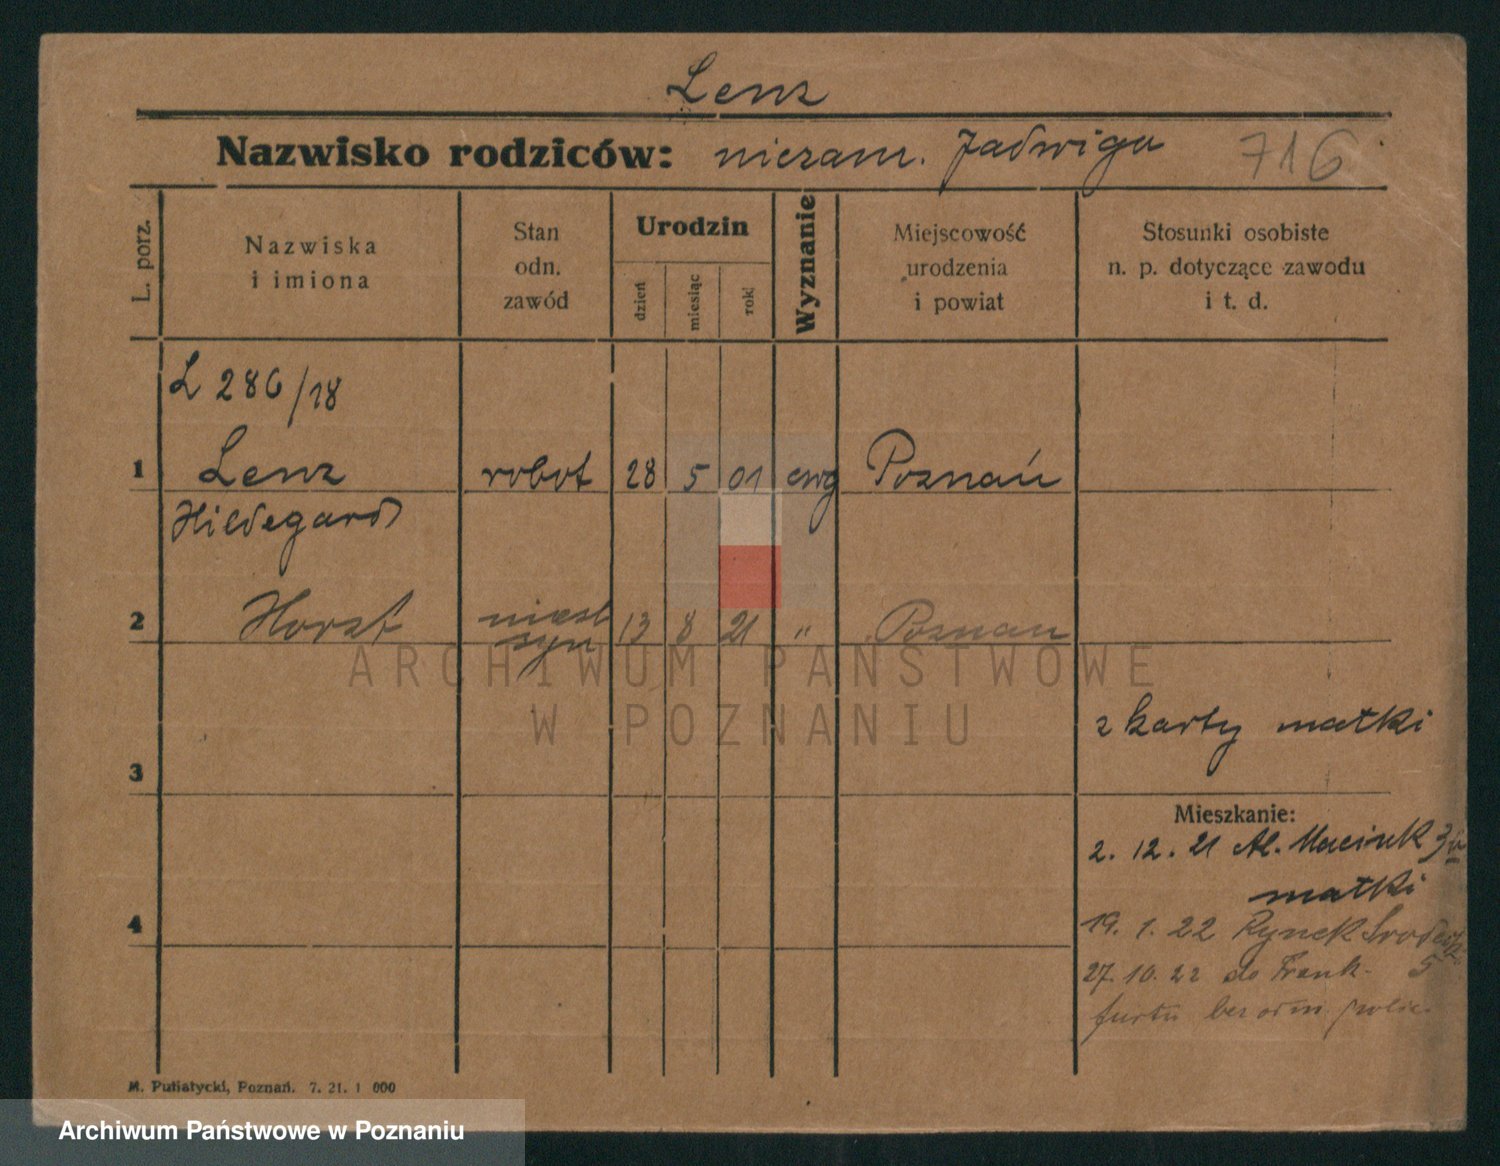 Lenz
Nazwisko rodziców: niezam. Jadwiga 716
L. porz.
Nazwiska
i imiona
Stan
odn.
zawód
Urodzin
dzień
miesiąc
rok
Wyznanie
Miejscowość
urodzenia
i powiat
Stosunki osobiste
n. p. dotyczące zawodu
i t. d.
L 286/18
1 Lenz robot 28 5 01 ewg Poznań
Hildegard
2 Horst nieśl 13 8 21 " Poznan
syn
ARCHIWUM PAŃSTWOWE
W POZNANIU
z karty matki
3
Mieszkanie:
2. 12. 21 Al. 
matki
4
19. 1. 22 Rynek
27. 10. 22 do Frank- 5
furtu bez odm polic.
M. Putiatycki, Poznań. 7. 21. 1 000
Archiwum Państwowe w Poznaniu